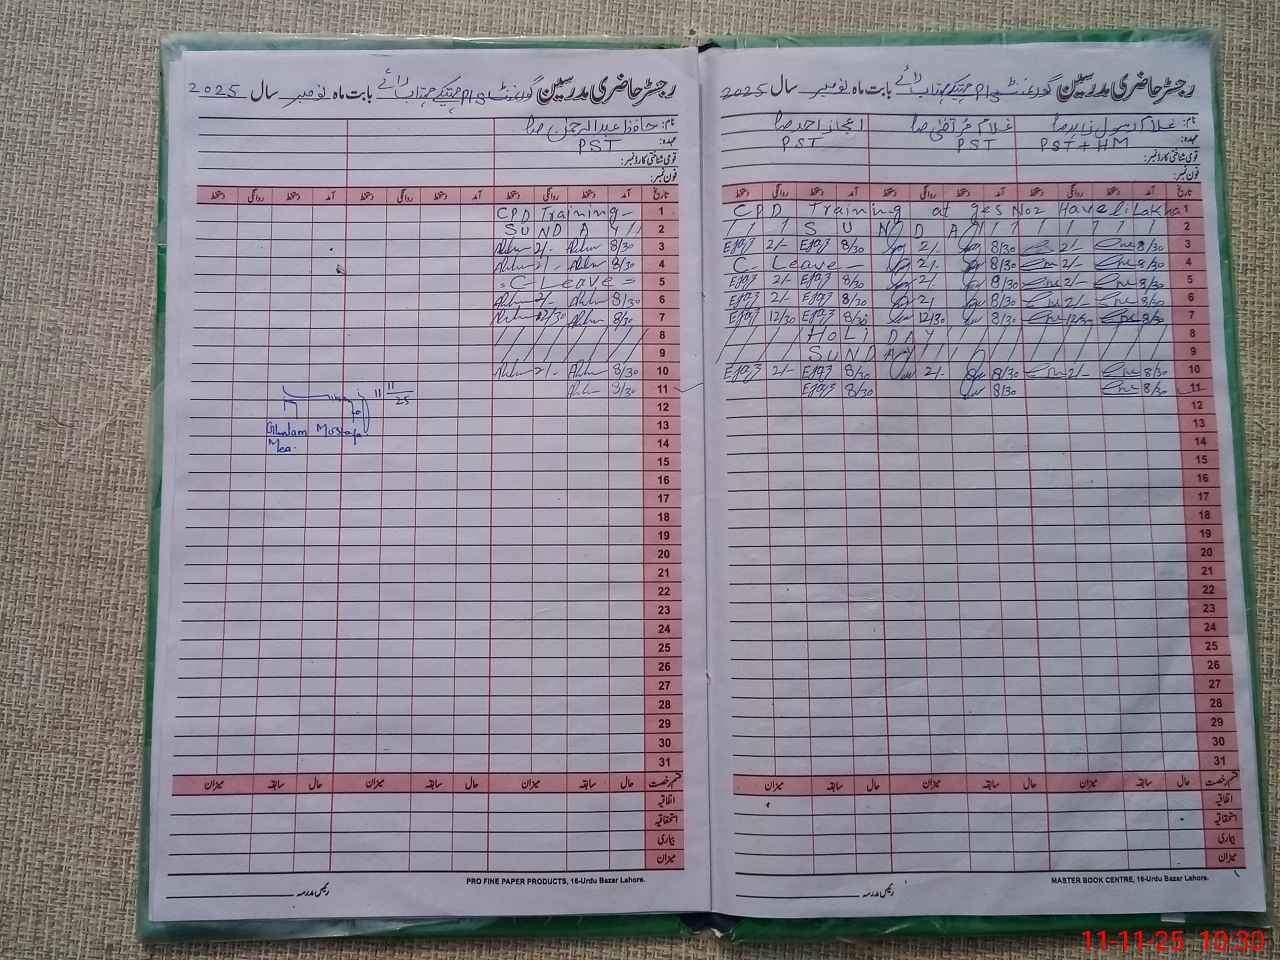 رجسٹر حاضری مدرسین گورنمنٹ بابت ماہ نومبر سال 2025
نام: غلام رسول زاہد صا
غلام مرتضیٰ صا
اعجاز احمد صا
عہدہ: PST + HM
PST
PST
قومی شناختی کارڈ نمبر:
فون نمبر:
تاریخ آمد دستخط روانگی دستخط آمد دستخط روانگی دستخط آمد دستخط روانگی دستخط
1 CPD Training at ges No2 Haveli Lakha
2 SUNDAY
3 8/30 2/- 8/30 2/- 8/30 Ejaz 2/- Ejaz
4 8/30 2/- 8/30 2/- C- Leave -
5 8/30 2/- 8/30 2/- 8/30 Ejaz 2/- Ejaz
6 8/30 2/- 8/30 2/ 8/30 Ejaz 2/- Ejaz
7 8/30 12/30 8/30 12/30 8/30 Ejaz 12/30 Ejaz
8 HOLIDAY
9 SUNDAY
10 8/30 2/- 8/30 2/- 8/30 Ejaz 2/- Ejaz
11 8/30 8/30 8/30 Ejaz
12
13
14
15
16
17
18
19
20
21
22
23
24
25
26
27
28
29
30
31
قسم رخصت حال سابقہ میزان حال سابقہ میزان حال سابقہ میزان
اتفاقیہ
استحقاقیہ
بیماری
میزان
MASTER BOOK CENTRE, 16-Urdu Bazar Lahore.
رئیس مدرسہ
رجسٹر حاضری مدرسین گورنمنٹ بابت ماہ نومبر سال 2025
نام: حافظ عبدالرحمٰن صا
عہدہ: PST
قومی شناختی کارڈ نمبر:
فون نمبر:
تاریخ آمد دستخط روانگی دستخط آمد دستخط روانگی دستخط آمد دستخط روانگی دستخط
1 CPD Training-
2 SUNDAY
3 8/30 2/-
4 8/30 2/-
5 - C Leave =
6 8/30 2/-
7 8/30 12/30
8
9
10 8/30 2/-
11 8/30
11 11/25
12
13 Ghulam Mustafa
14 Mea.
15
16
17
18
19
20
21
22
23
24
25
26
27
28
29
30
31
قسم رخصت حال سابقہ میزان حال سابقہ میزان حال سابقہ میزان
اتفاقیہ
استحقاقیہ
بیماری
میزان
PRO FINE PAPER PRODUCTS, 16-Urdu Bazar Lahore.
رئیس مدرسہ
11-11-25 10:30